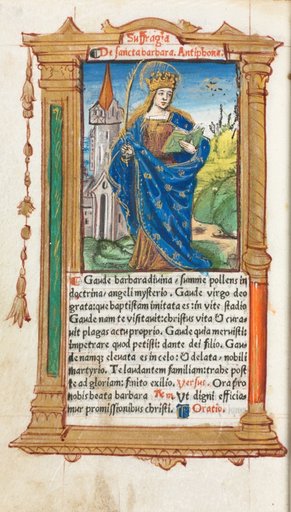 Suffragia
De sancta barbara. Antiphone.
Gaude barbara diuina / summe pollens in
doctrina / angeli mysterio. Gaude virgo deo
grata: que baptistam imitata es: in vite stadio
Gaude nam te visitauit: christus vita & cura
uit plagas actu proprio. Gaude quia meruisti:
impetrare quod petisti: dante dei filio. Gau
de namq; eleuata es in celo: & delata / nobili
martyrio. Te laudantem familiam: trahe post
te ad gloriam: finito exilio. Versus. Ora pro
nobis beata barbara Rem. Vt digni efficia
mur promissionibus christi. Oratio.